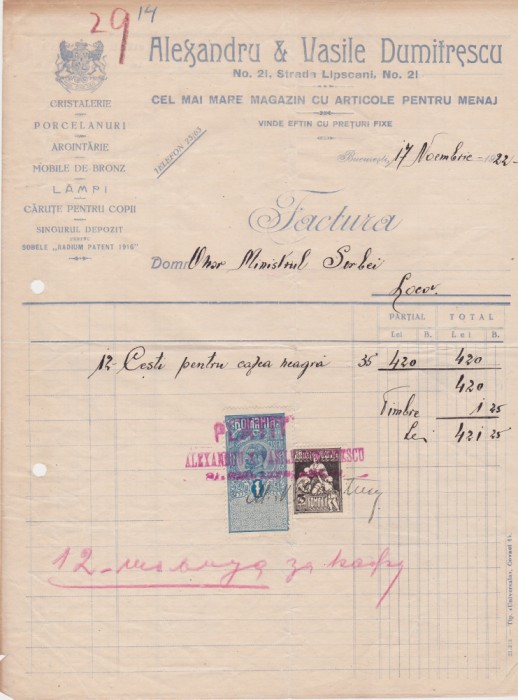 29 14
Alexandru & Vasile Dumitrescu
No. 21. Strada Lipscani, No. 21
CEL MAI MARE MAGAZIN CU ARTICOLE PENTRU MENAJ
VINDE EFTIN CU PREȚURI FIXE
CRISTALERIE
PORCELANURI
ARGINTĂRIE
MOBILE DE BRONZ
LĂMPI
CĂRUȚE PENTRU COPII
SINGURUL DEPOZIT
PENTRU
SOBELE „RADIUM PATENT 1916"
TELEFON 23/83
București, 17 Noembrie 1922
Factura
Domn Onor Ministrul Serbei
Locov.
PARȚIAL TOTAL
Lei B. Lei B.
12- Cești pentru cafea neagră 35 420 420
420
Timbre 1 25
Lei 421 25
ROMANIA
PLATIT
ALEXANDRU & VASILE DUMITRESCU
1
12- шолуа за кафу